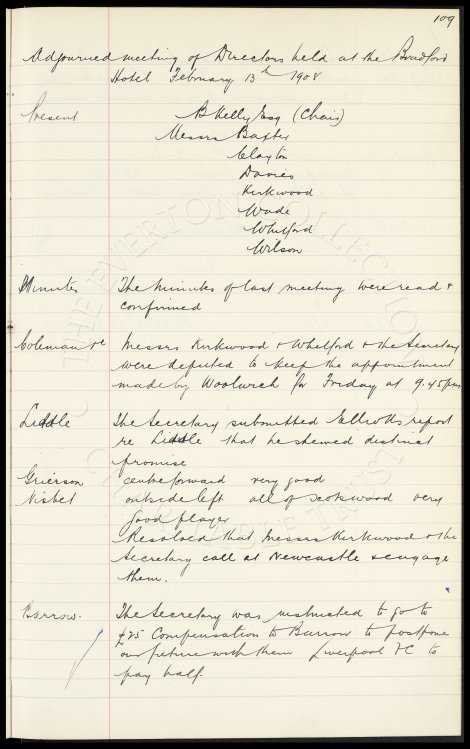 109
Adjourned meeting of Directors held at the Bradford
Hotel February 13th 1908
Present B Kelly Esq (Chair)
Messrs Baxter
Clayton
Davies
Kirkwood
Wade
Whitford
Wilson
Minutes The minutes of last meeting were read &
confirmed
Coleman re Messrs Kirkwood & Whitford & the Secretary
were deputed to keep the appointment
made by Woolwich for Friday at 9.45pm
Liddle The Secretary submitted Elliotts report
re Liddle that he shewed distinct
promise
Grierson centre forward very good
Nisbet outside left all of Scotswood very
good player
Resolved that Messrs Kirkwood & the
Secretary call at Newcastle & engage
them.
Barrow. The Secretary was instructed to go to
£25 Compensation to Barrow to postpone
our fixture with them Liverpool FC to
pay half.
THE EVERTON COLLECTION
CHARITABLE TRUST